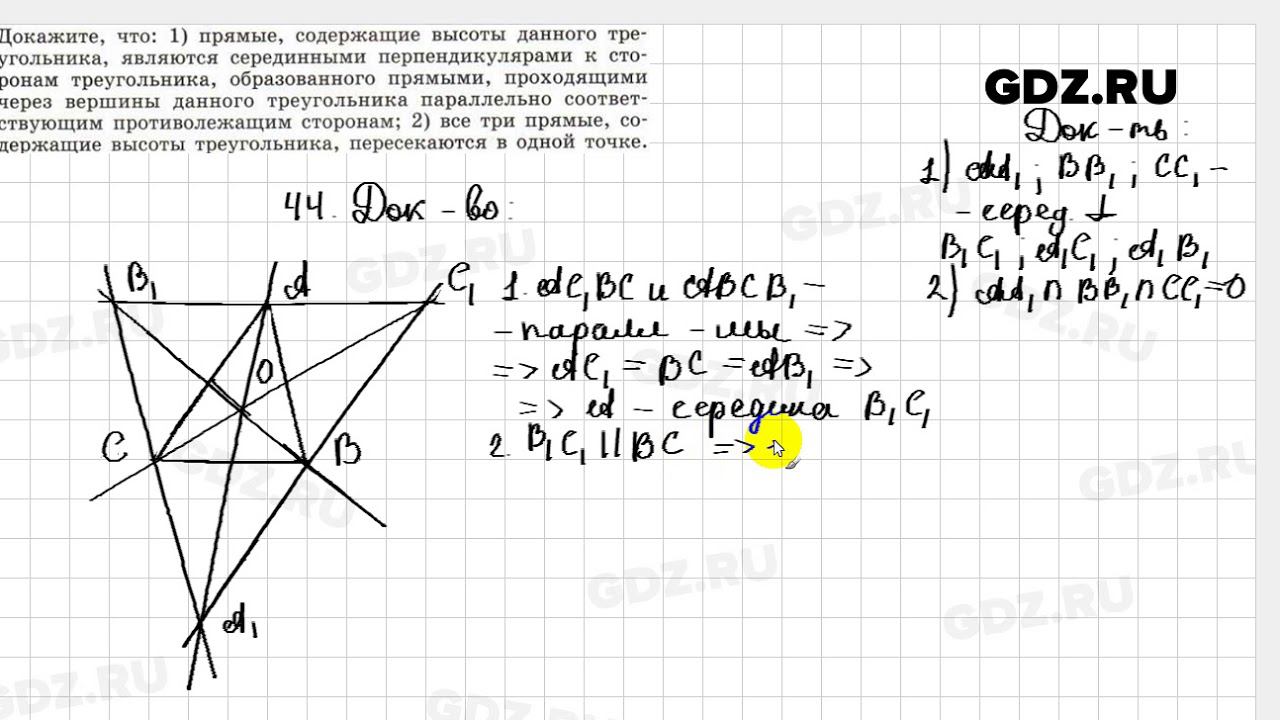 Докажите, что: 1) прямые, содержащие высоты данного тре-
угольника, являются серединными перпендикулярами к сто-
ронам треугольника, образованного прямыми, проходящими
через вершины данного треугольника параллельно соответ-
ствующим противолежащим сторонам; 2) все три прямые, со-
держащие высоты треугольника, пересекаются в одной точке.
GDZ.RU
Док-ть:
1) AA₁; BB₁; CC₁ –
– серед. ⊥
B₁C₁; A₁C₁; A₁B₁
2) AA₁ ∩ BB₁ ∩ CC₁ = O
44. Док-во:
B₁ A C₁
O
C B
A₁
1. AC₁BC и ABCB₁ –
– паралл-мы =>
=> AC₁ = BC = AB₁ =>
=> A – середина B₁C₁
2. B₁C₁ || BC =>
GDZ.RU
GDZ.RU
GDZ.RU
GDZ.RU
GDZ.RU
GDZ.RU
GDZ.RU
GDZ.RU
GDZ.RU
GDZ.RU
GDZ.RU